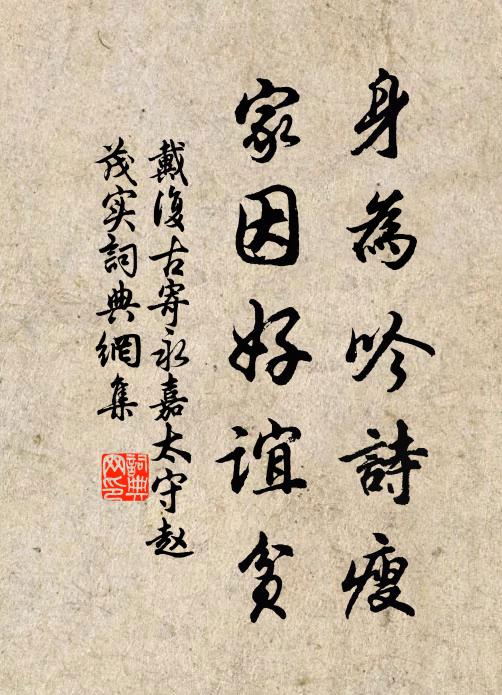 身為吟詩瘦
家因好誼貧
戴復古寄永嘉太守赵
茂实詞典網集
詞典網印